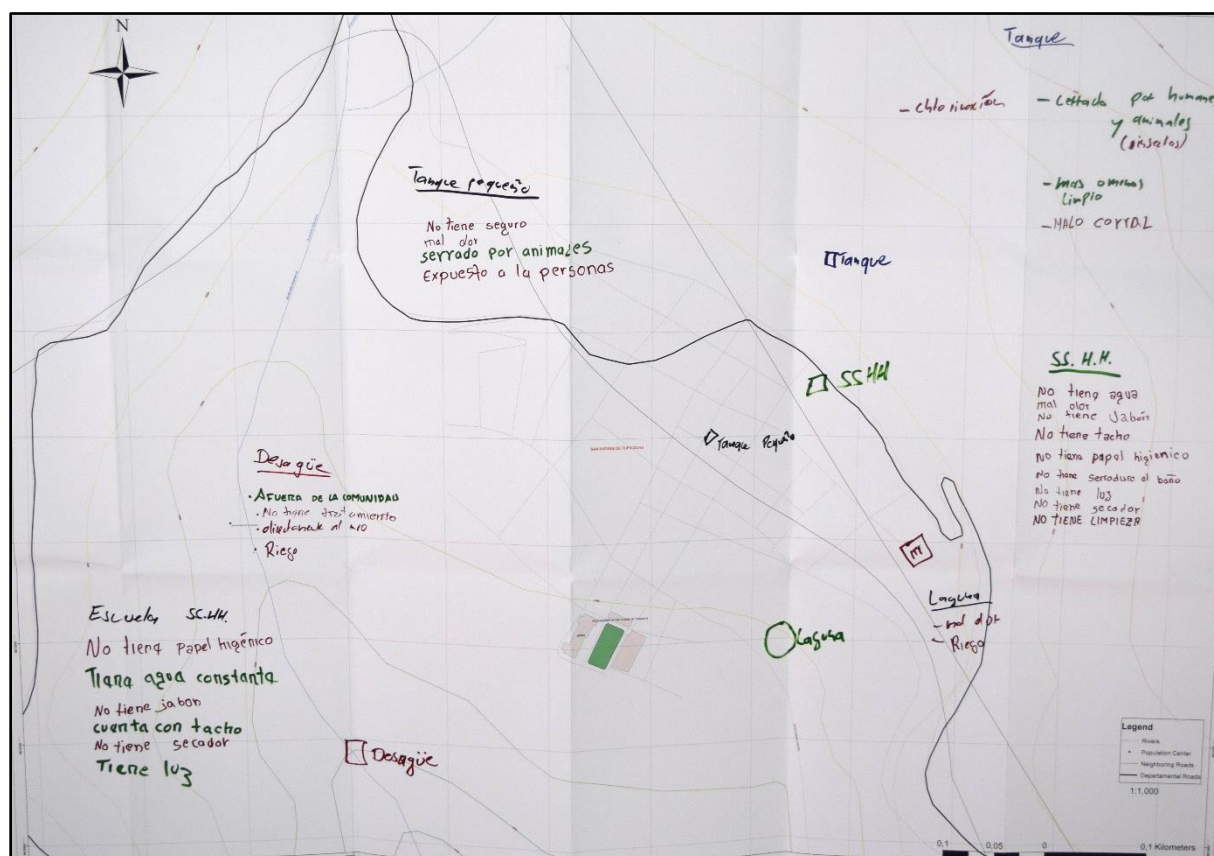 N
Tanque
- Chlorinaxión
- Cerrado por humano
y animales
- mas o minos
Limpio
- MALO CORTAL
Tanque pequeño
No tiene seguro
mal olor
serrado por animales
Expuesto a la personas
Tanque
SSHH
Tanque Pequño
SS. H.H.
No tiene agua
mal olor
No tiene Jabón
No tiene tacho
No tiene papel higienico
No tiene serradura el baño
No tiene luz
No tiene secador
NO TIENE LIMPIEZA
Desagüe
• AFUERA DE LA COMUNIDAD
• No tiene tratamiento
• al rio
• Riego
E
Laguna
- mal olor
- Riego
Laguna
Escuela SS.HH.
No tiene papel higénico
Tiene agua constante
No tiene jabon
cuenta con tacho
No tiene secador
Tiene luz
Desagüe
Legend
Rivers
Population Center
Neighboring Roads
Departmental Roads
1:1.000
0,1 0,05 0 0,1 Kilometers